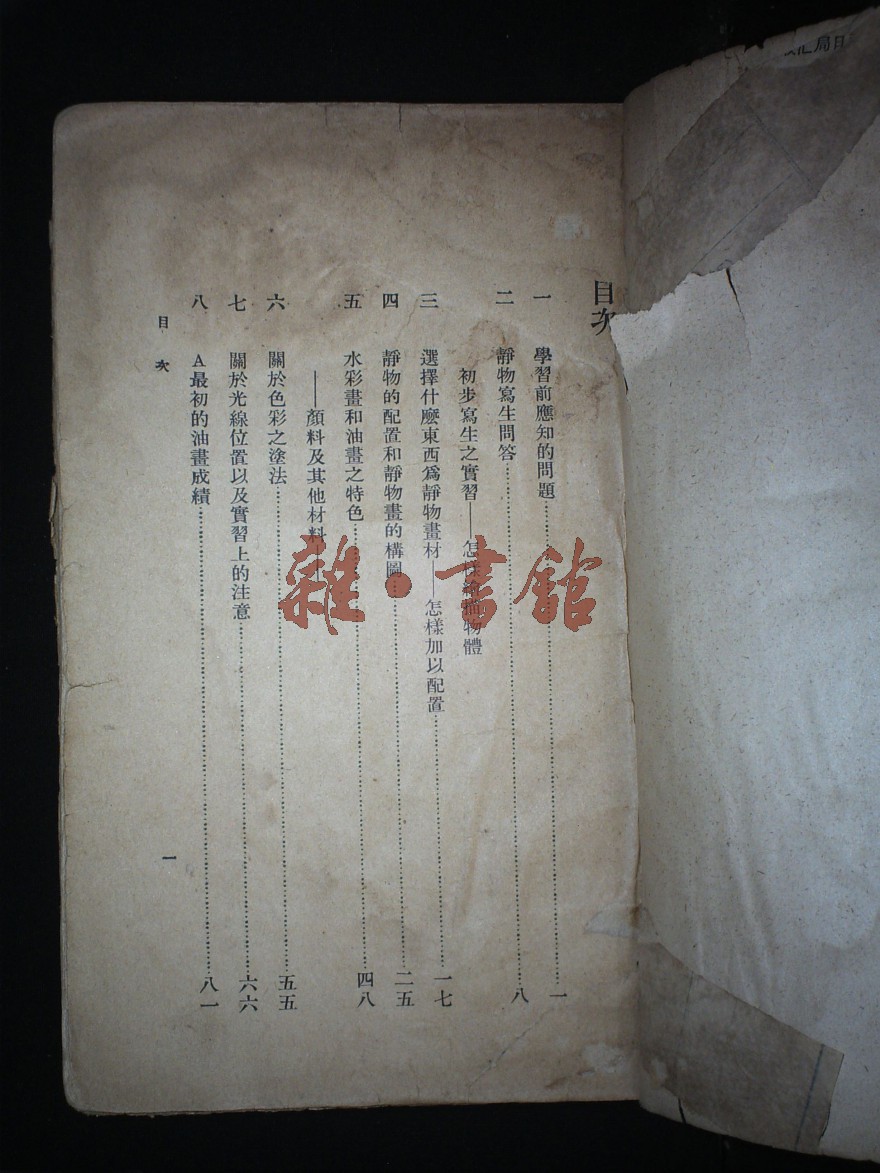 目次
一 學習前應知的問題……一
二 靜物寫生問答……八
初步寫生之實習——怎樣繪描物體
三 選擇什麽東西爲靜物畫材——怎樣加以配置……一七
四 靜物的配置和靜物畫的構圖……二五
五 水彩畫和油畫之特色……四八
——顏料及其他材料——
六 關於色彩之塗法……五五
七 關於光線位置以及實習上的注意……六六
八 A最初的油畫成績……八一
目次 一
雜·書館